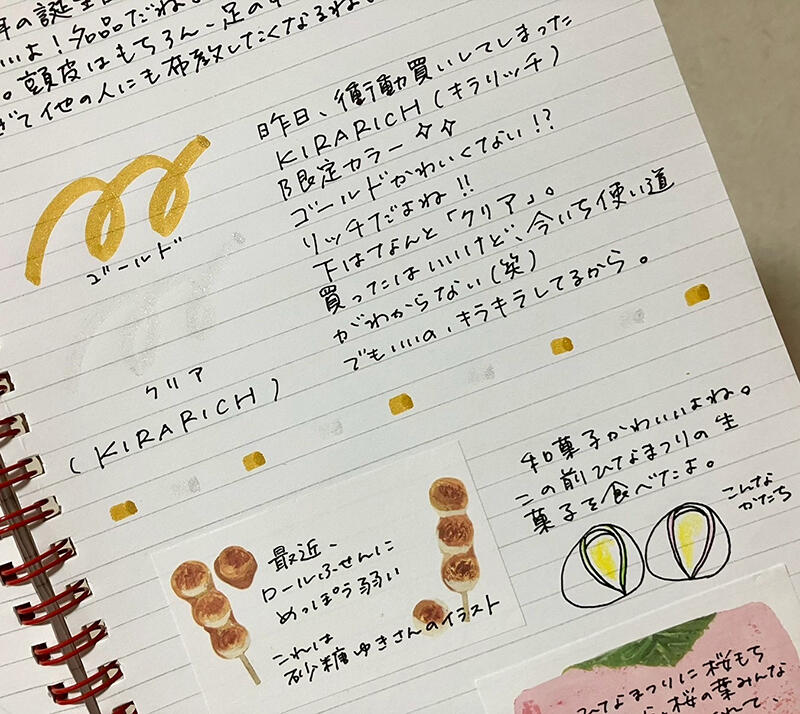 年の誕生
いいよ！名品だね。
。頭皮はもちろん、足の
ぎて他の人にも布教したくなるね。
昨日、衝動買いしてしまった
KIRARICH（キラリッチ）
限定カラー☆☆
ゴールドかわいくない！？
リッチだよね！！
下はなんと「クリア」。
買ったはいいけど、今いち使い道
がわからない（笑）
でもいいの、キラキラしてるから。
ゴールド
クリア
（KIRARICH）
和菓子かわいいよね。
この前ひなまつりの生
菓子を食べたよ。
こんな
かたち
最近、
ロールふせんに
めっぽう弱い
これは
砂糖ゆきさんのイラスト
ひなまつりに桜もち
桜の葉みんな